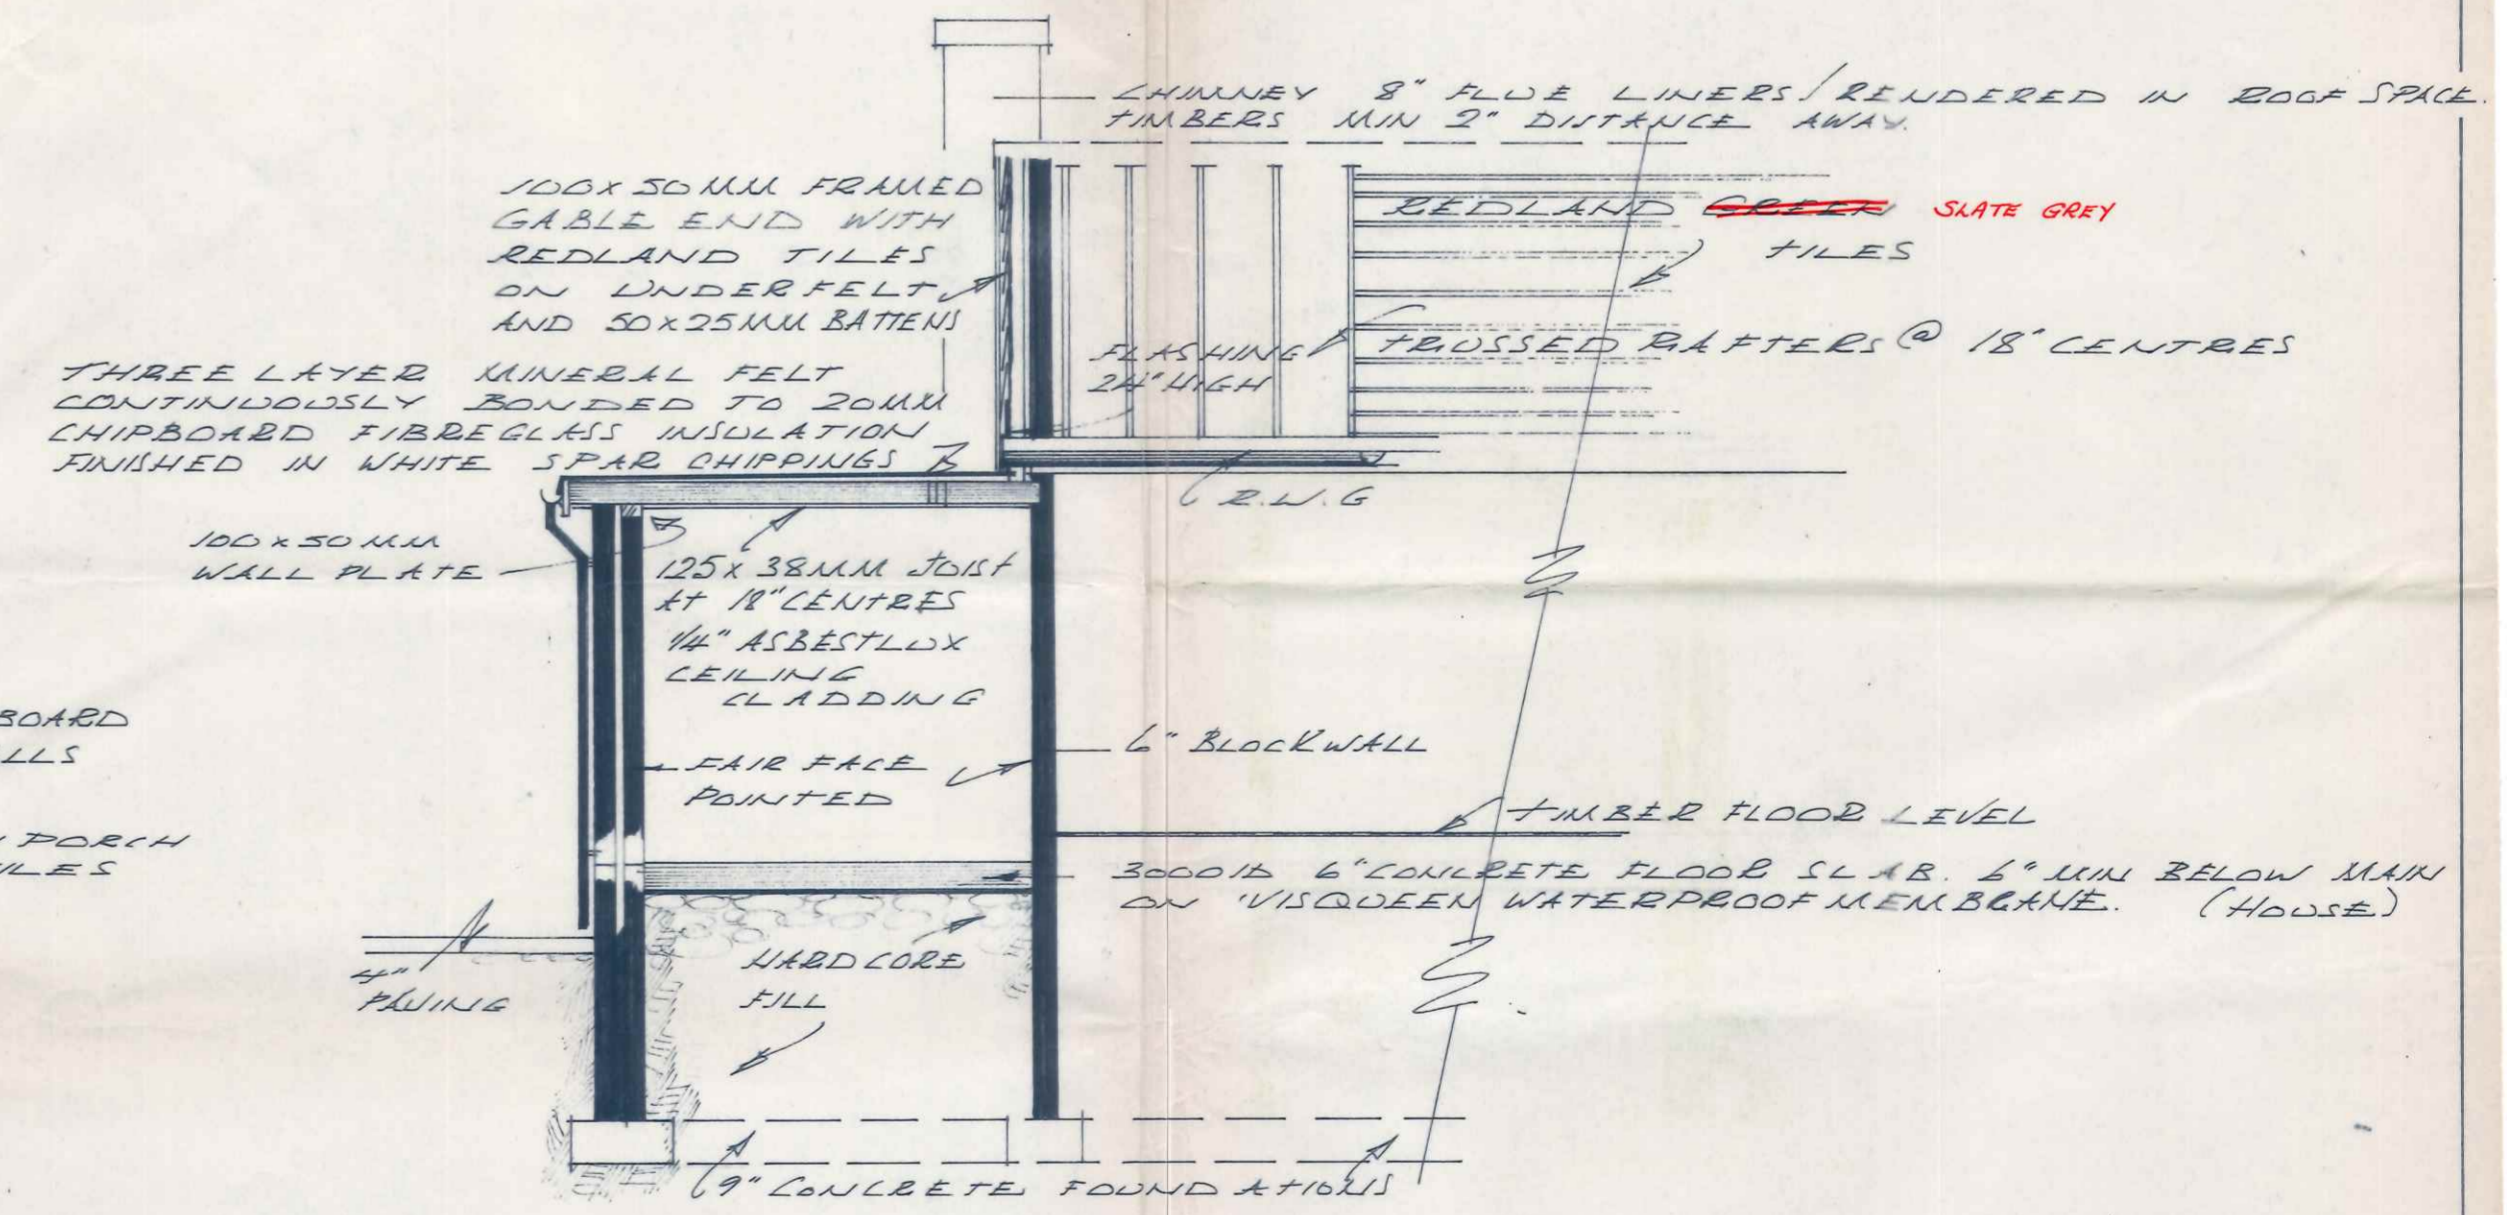 CHIMNEY 8" FLUE LINERS/RENDERED IN ROOF SPACE.
TIMBERS MIN 2" DISTANCE AWAY.
100 x 50 MM FRAMED
GABLE END WITH
REDLAND TILES
ON UNDERFELT
AND 50 x 25 MM BATTENS
REDLAND GREEN SLATE GREY
TILES
FLASHING
24" HIGH
TRUSSED RAFTERS @ 18" CENTRES
THREE LAYER MINERAL FELT
CONTINUOUSLY BONDED TO 20MM
CHIPBOARD FIBREGLASS INSULATION
FINISHED IN WHITE SPAR CHIPPINGS
R.W.G
100 x 50 MM
WALL PLATE
125 x 38MM JOIST
AT 18" CENTRES
1/4" ASBESTLUX
CEILING
CLADDING
BOARD
LLS
6" BLOCK WALL
FAIR FACE
POINTED
TIMBER FLOOR LEVEL
PORCH
3000 lb 6" CONCRETE FLOOR SLAB. 6" MIN BELOW MAIN
ON 'VISQUEEN WATERPROOF MEMBRANE. (HOUSE)
HARDCORE
FILL
4"
PAVING
9" CONCRETE FOUNDATIONS